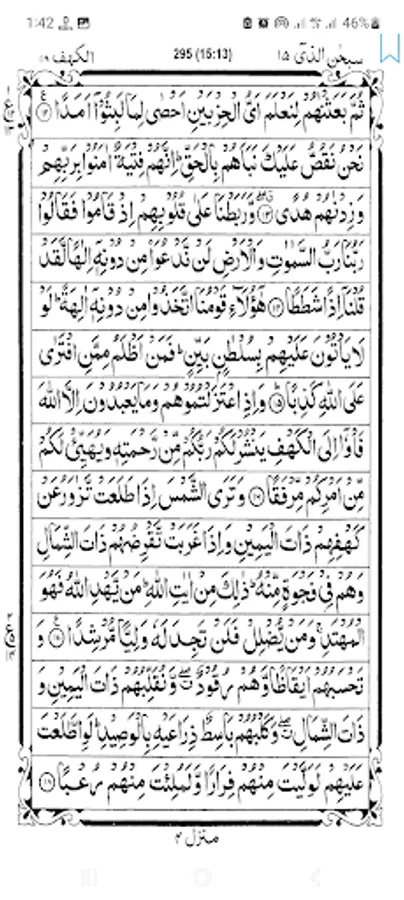 1:42 46%
الكهف ١٨ 295 (15:13) سبحٰن الذیٓ ١٥
ثُمَّ بَعَثْنٰهُمْ لِنَعْلَمَ اَىُّ الْحِزْبَيْنِ اَحْصٰى لِمَا لَبِثُوْۤا اَمَدًا ۝١٢
نَحْنُ نَقُصُّ عَلَيْكَ نَبَاَهُمْ بِالْحَقِّ ؕ اِنَّهُمْ فِتْيَةٌ اٰمَنُوْا بِرَبِّهِمْ
وَزِدْنٰهُمْ هُدًى ۝١٣ وَّرَبَطْنَا عَلٰى قُلُوْبِهِمْ اِذْ قَامُوْا فَقَالُوْا
رَبُّنَا رَبُّ السَّمٰوٰتِ وَالْاَرْضِ لَنْ نَّدْعُوَا۟ مِنْ دُوْنِهٖۤ اِلٰهًا لَّقَدْ
قُلْنَاۤ اِذًا شَطَطًا ۝١٤ هٰۤؤُلَآءِ قَوْمُنَا اتَّخَذُوْا مِنْ دُوْنِهٖۤ اٰلِهَةً ؕ لَوْ
لَا يَاْتُوْنَ عَلَيْهِمْ بِسُلْطٰنٍۭ بَيِّنٍ ؕ فَمَنْ اَظْلَمُ مِمَّنِ افْتَرٰى
عَلَى اللّٰهِ كَذِبًا ۝١٥ وَاِذِ اعْتَزَلْتُمُوْهُمْ وَمَا يَعْبُدُوْنَ اِلَّا اللّٰهَ
فَاْوٗۤا اِلَى الْكَهْفِ يَنْشُرْ لَكُمْ رَبُّكُمْ مِّنْ رَّحْمَتِهٖ وَيُهَيِّئْ لَكُمْ
مِّنْ اَمْرِكُمْ مِّرْفَقًا ۝١٦ وَتَرَى الشَّمْسَ اِذَا طَلَعَتْ تَّزٰوَرُ عَنْ
كَهْفِهِمْ ذَاتَ الْيَمِيْنِ وَاِذَا غَرَبَتْ تَّقْرِضُهُمْ ذَاتَ الشِّمَالِ
وَهُمْ فِىْ فَجْوَةٍ مِّنْهُ ؕ ذٰلِكَ مِنْ اٰيٰتِ اللّٰهِ ؕ مَنْ يَّهْدِ اللّٰهُ فَهُوَ
الْمُهْتَدِ ۚ وَمَنْ يُّضْلِلْ فَلَنْ تَجِدَ لَهٗ وَلِيًّا مُّرْشِدًا ۝١٧ وَ
تَحْسَبُهُمْ اَيْقَاظًا وَّهُمْ رُقُوْدٌ ۖ وَّنُقَلِّبُهُمْ ذَاتَ الْيَمِيْنِ وَ
ذَاتَ الشِّمَالِ ۖ وَكَلْبُهُمْ بَاسِطٌ ذِرَاعَيْهِ بِالْوَصِيْدِ ؕ لَوِ اطَّلَعْتَ
عَلَيْهِمْ لَوَلَّيْتَ مِنْهُمْ فِرَارًا وَّلَمُلِئْتَ مِنْهُمْ رُعْبًا ۝١٨
منزل ٤